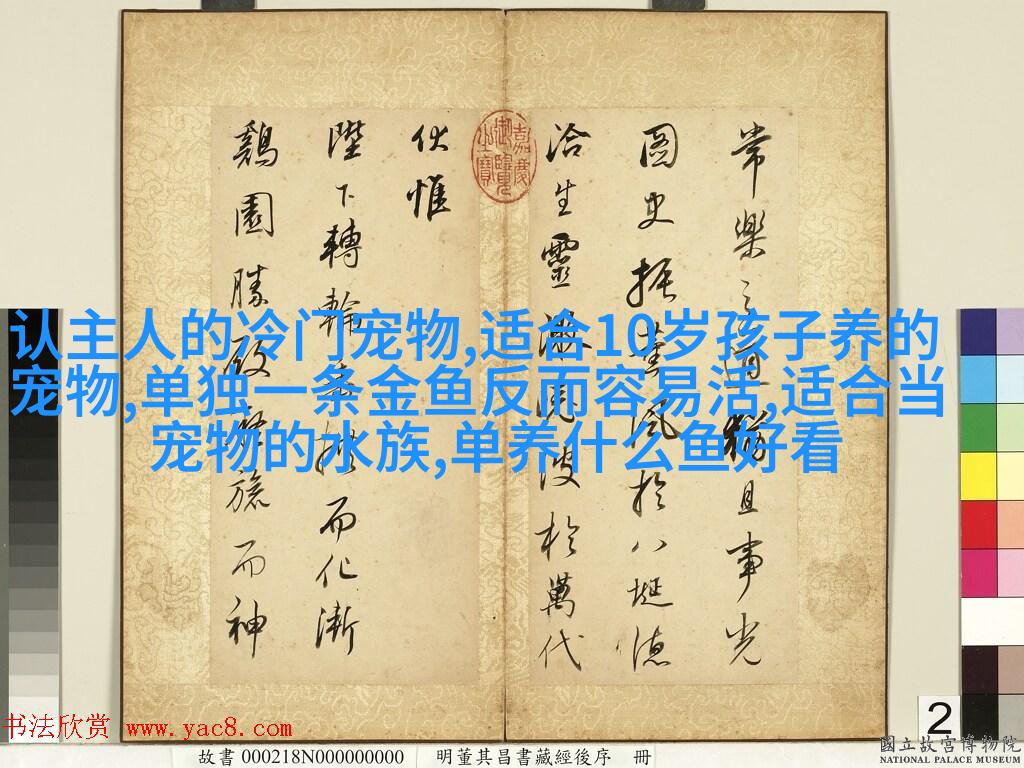 常樂之道猶且事光
圖史振風於八埏德
洽生靈流波於萬代
伏惟
陛下轉輪而化漸
鷄園勝而神
嘉慶御覽之寶
认主人的冷门宠物,适合10岁孩子养的
宠物,单独一条金鱼反而容易活,适合当
宠物的水族,单养什么鱼好看
2
书法欣赏 www.yac8.com
故書 000218N000000000 明董其昌書藏經後序 冊
國立故宮博物院
NATIONAL PALACE MUSEUM